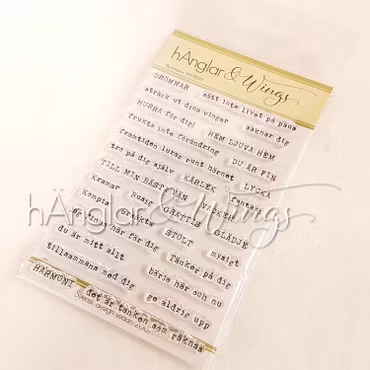 hÄnglar & Wings
DRÖMMAR sätt inte livet på paus
sträck ut dina vingar saknar dig
HURRA för dig! HEM LJUVA HEM
frukta inte förändring DU ÄR FIN
framtiden lurar runt hörnet LYCKA
tro på dig själv KÄRLEK fantasi
TILL MIN BÄSTA VÄN VACKER
kramar Busig GRATTIS GLÄDJE
Kompis
jag finns här för dig STOLT mysigt
du är mitt allt Tänker på dig
tillsammans med dig börja här och nu
HARMONI ge aldrig upp
det är tanken som räknas
Svensk design sedan
hÄnglar & Wings